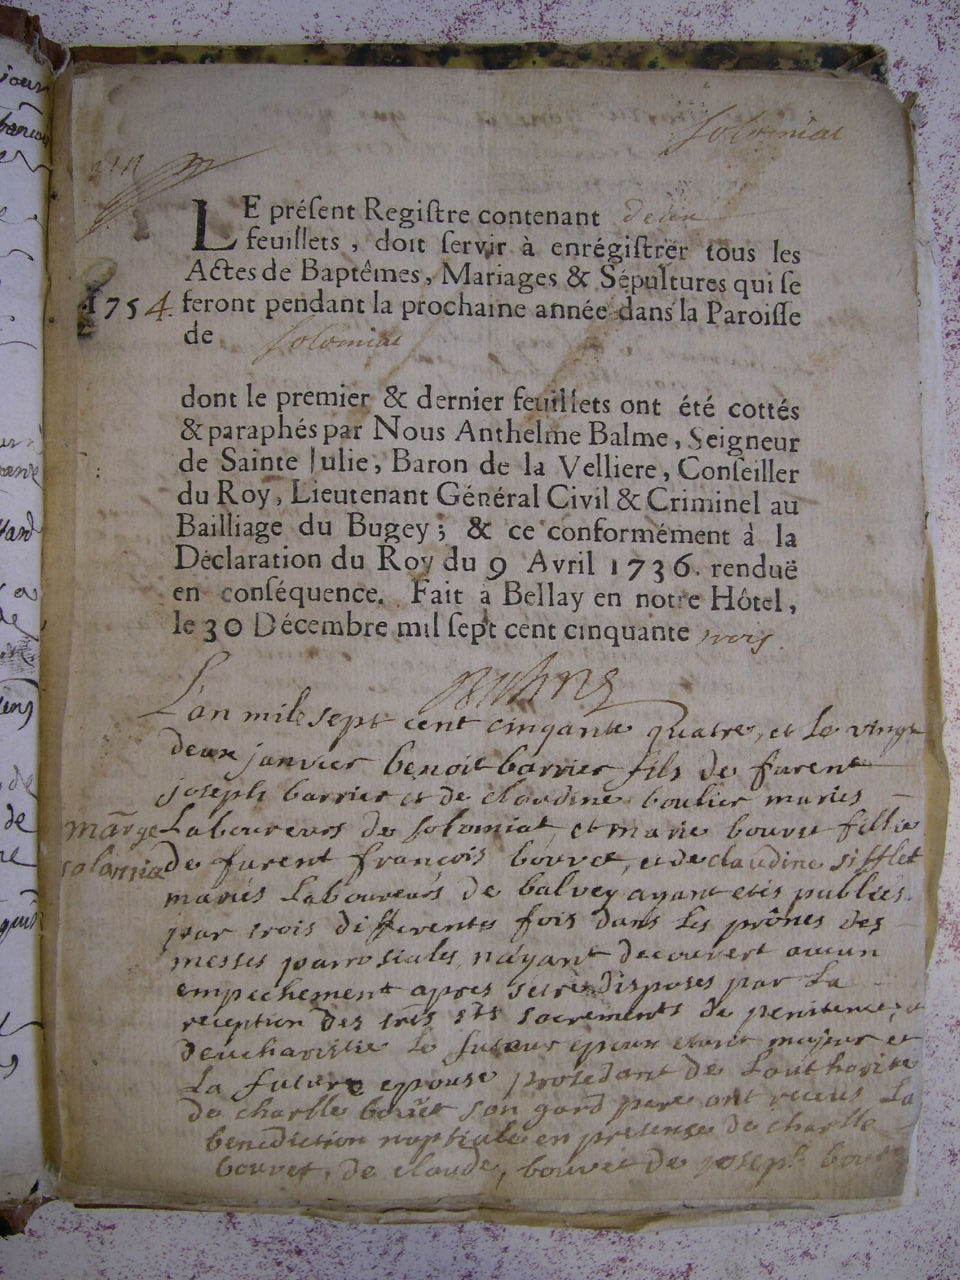 Solomiat
LE présent Registre contenant deux
feuillets, doit servir à enrégistrer tous les
Actes de Baptêmes, Mariages & Sépultures qui se
1754. feront pendant la prochaine année dans la Paroisse
de Solomiat
dont le premier & dernier feuillets ont été cottés
& paraphés par Nous Anthelme Balme, Seigneur
de Sainte Julie, Baron de la Velliere, Conseiller
du Roy, Lieutenant Général Civil & Criminel au
Bailliage du Bugey; & ce conformément à la
Déclaration du Roy du 9 Avril 1736. renduë
en conséquence. Fait à Bellay en notre Hôtel,
le 30 Décembre mil sept cent cinquante trois
L'an mile sept cent cinqante quatre, et le vingt
deux janvier benoit barrier fils de furent
joseph barrier et de claudine boulier maries
Laboureurs de solomiat, et marie bouvet fillie
de furent françois bouvet, et de claudine sifflet
mariés Laboureurs de balvey ayant etés publiées
par trois differentes fois dans les prônes des
messes parrosiales, n'ayant decouvert aucun
empechement apres setre disposes par La
reception des tres sts sacrements de penitence, et
deucharistie le futeur epoux etant majeur et
La future epouse procedant de Lauthorite
de charlle bouvet son gard pere ont receus La
benediction nuptiale en presence de charlle
bouvet, de claude, bouvet de joseph
marge
solomiat